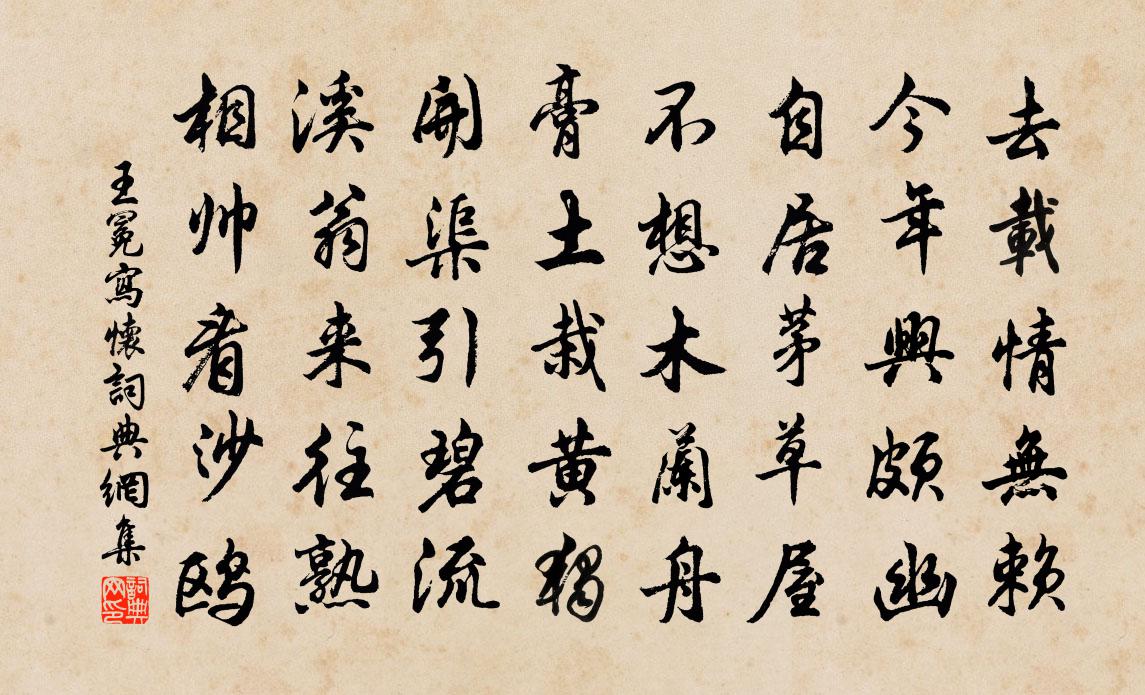 去載情無賴
今年興頗幽
自居茅草屋
不想木蘭舟
膏土栽黄獨
開渠引碧流
溪翁来往熟
相帅看沙鸥
王冕寫懷詞典網集
詞典网印